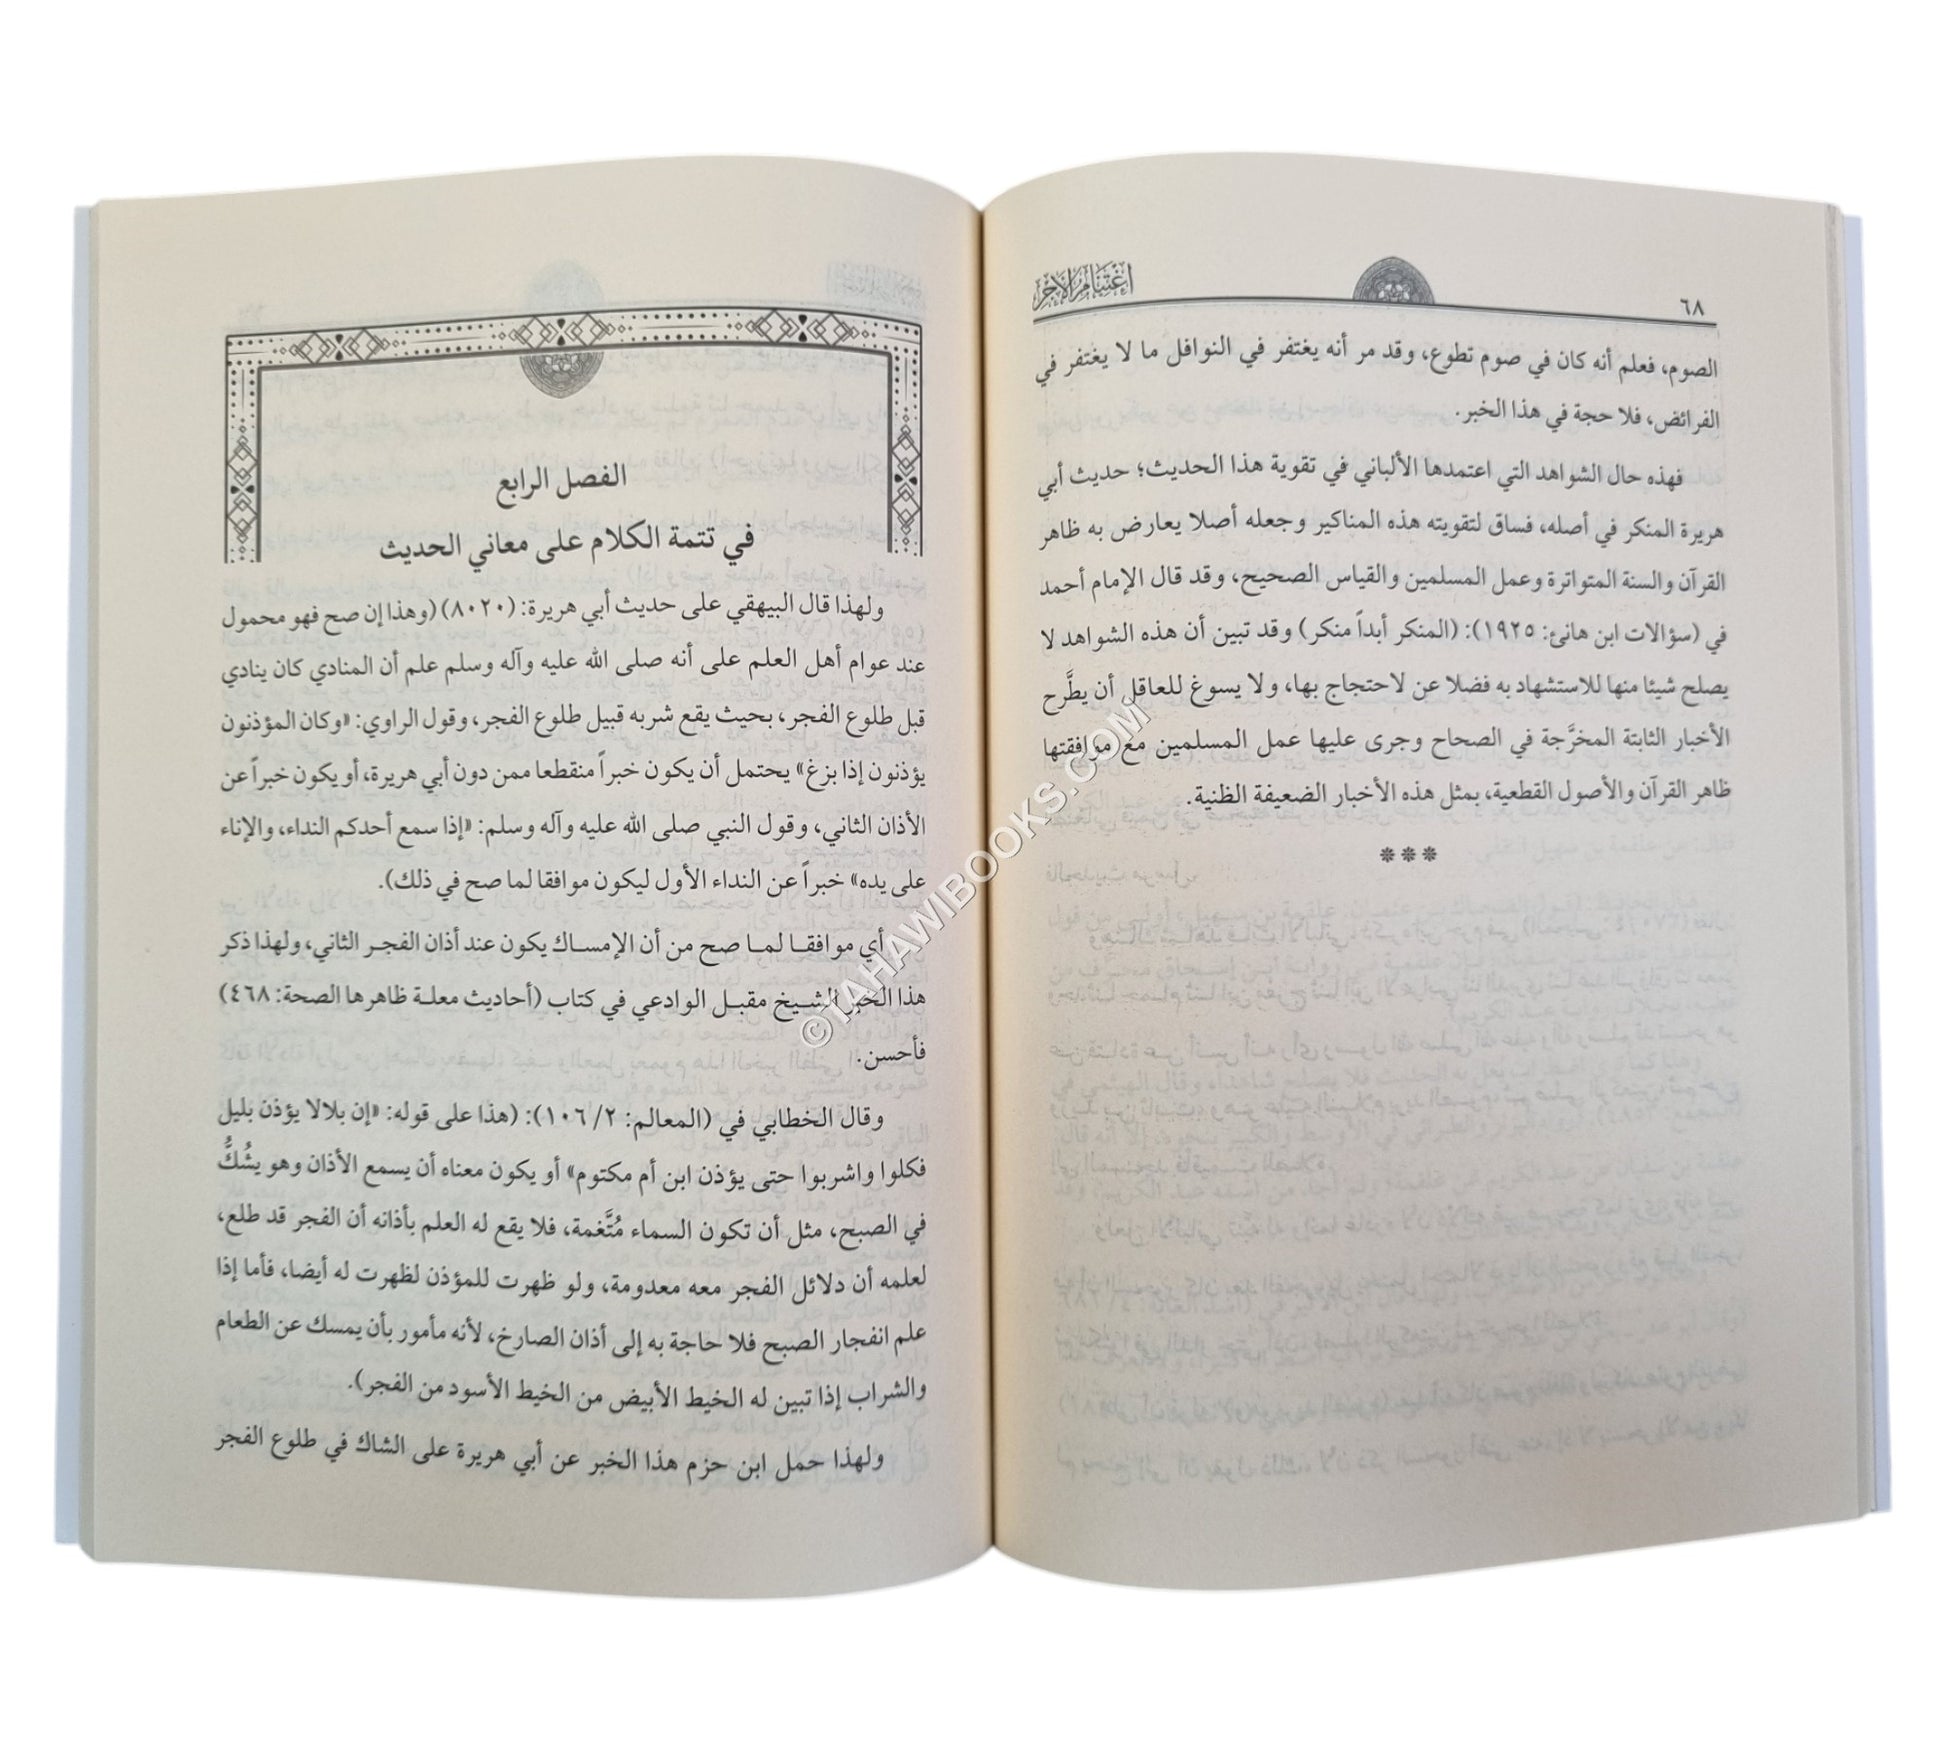 ٦٨
اغتنام الأجر
الصوم، فعلم أنه كان في صوم تطوع، وقد مر أنه يغتفر في النوافل ما لا يغتفر في
الفرائض، فلا حجة في هذا الخبر.
فهذه حال الشواهد التي اعتمدها الألباني في تقوية هذا الحديث؛ حديث أبي
هريرة المنكر في أصله، فساق لتقويته هذه المناكير وجعله أصلا يعارض به ظاهر
القرآن والسنة المتواترة وعمل المسلمين والقياس الصحيح، وقد قال الإمام أحمد
في (سؤالات ابن هانئ: ١٩٢٥): (المنكر أبداً منكر) وقد تبين أن هذه الشواهد لا
يصلح شيئا منها للاستشهاد به فضلا عن لاحتجاج بها، ولا يسوغ للعاقل أن يطَّرح
الأخبار الثابتة المخرَّجة في الصحاح وجرى عليها عمل المسلمين مع موافقتها
ظاهر القرآن والأصول القطعية، بمثل هذه الأخبار الضعيفة الظنية.
***
الفصل الرابع
في تتمة الكلام على معاني الحديث
ولهذا قال البيهقي على حديث أبي هريرة: (٨٠٢٠) (وهذا إن صح فهو محمول
عند عوام أهل العلم على أنه صلى الله عليه وآله وسلم علم أن المنادي كان ينادي
قبل طلوع الفجر، بحيث يقع شربه قبيل طلوع الفجر، وقول الراوي: «وكان المؤذنون
يؤذنون إذا بزغ» يحتمل أن يكون خبراً منقطعا ممن دون أبي هريرة، أو يكون خبراً عن
الأذان الثاني، وقول النبي صلى الله عليه وآله وسلم: «إذا سمع أحدكم النداء، والإناء
على يده» خبراً عن النداء الأول ليكون موافقا لما صح في ذلك).
أي موافقا لما صح من أن الإمساك يكون عند أذان الفجر الثاني، ولهذا ذكر
هذا الخبر الشيخ مقبل الوادعي في كتاب (أحاديث معلة ظاهرها الصحة: ٤٦٨)
فأحسن.
وقال الخطابي في (المعالم: ٢/ ١٠٦): (هذا على قوله: «إن بلالا يؤذن بليل
فكلوا واشربوا حتى يؤذن ابن أم مكتوم» أو يكون معناه أن يسمع الأذان وهو يشُكُّ
في الصبح، مثل أن تكون السماء مُتَّغمة، فلا يقع له العلم بأذانه أن الفجر قد طلع،
لعلمه أن دلائل الفجر معه معدومة، ولو ظهرت للمؤذن لظهرت له أيضا، فأما إذا
علم انفجار الصبح فلا حاجة به إلى أذان الصارخ، لأنه مأمور بأن يمسك عن الطعام
والشراب إذا تبين له الخيط الأبيض من الخيط الأسود من الفجر).
ولهذا حمل ابن حزم هذا الخبر عن أبي هريرة على الشاك في طلوع الفجر
©TAHAWIBOOKS.COM